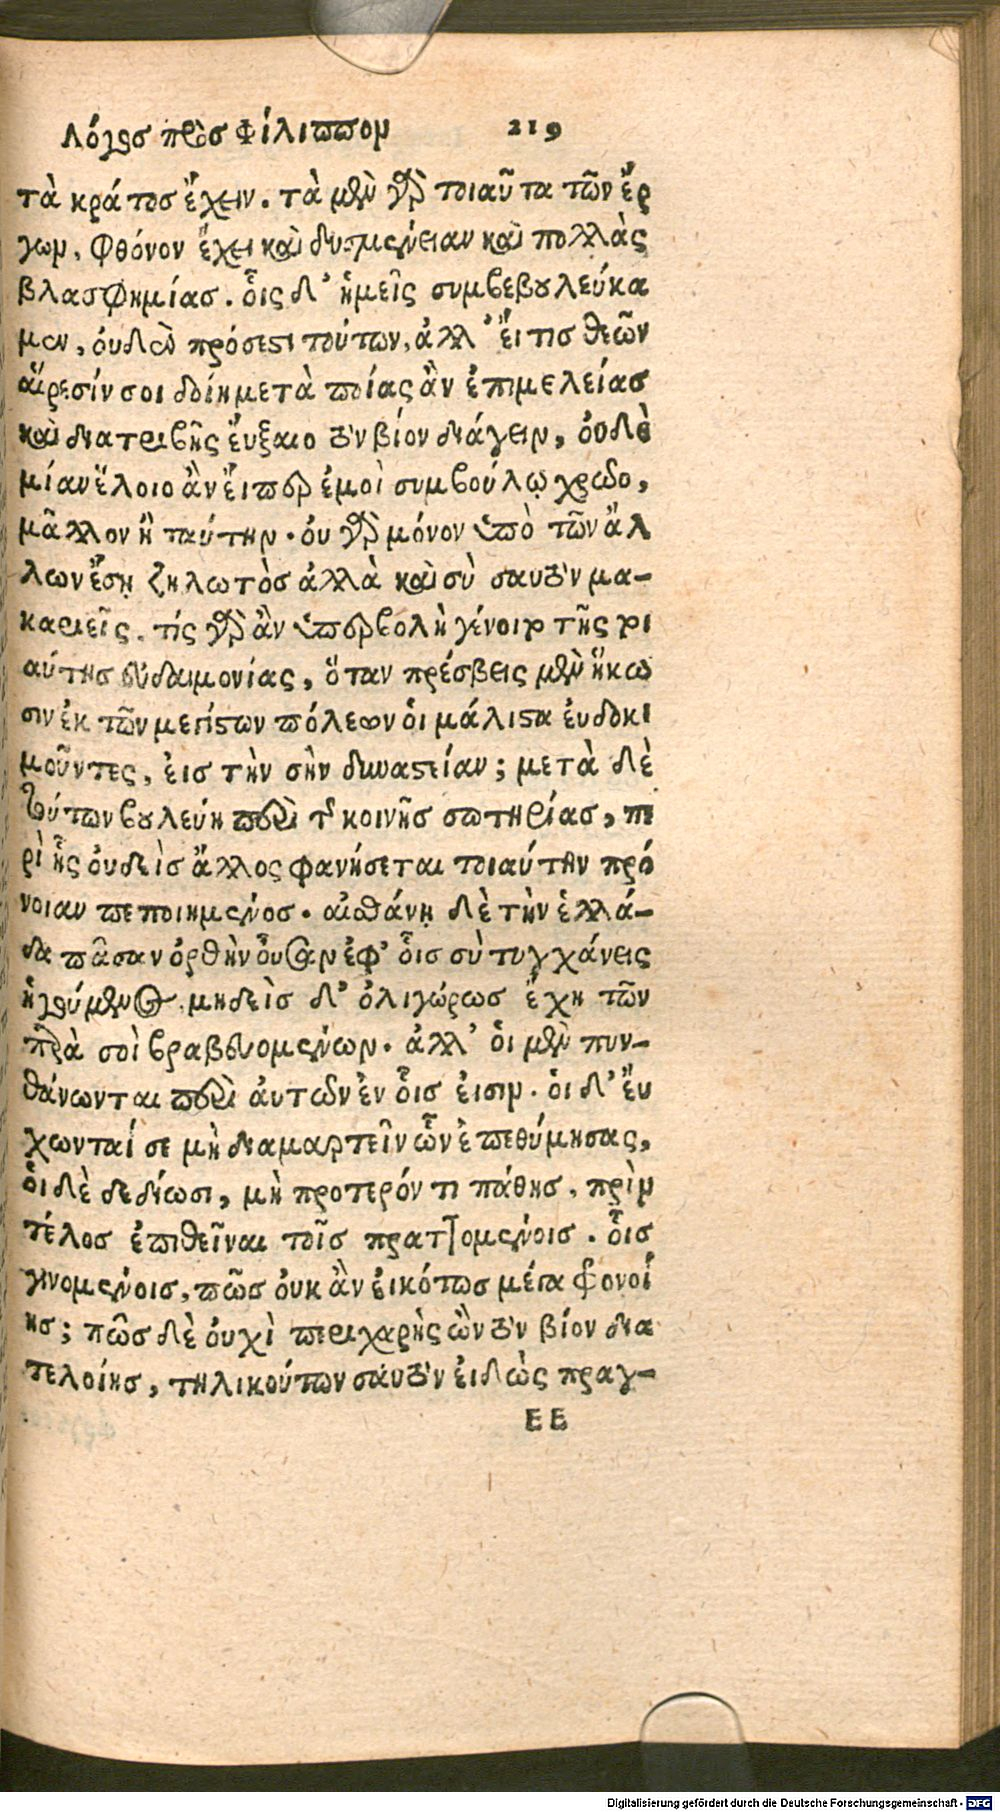 Λόγος πρὸς Φίλιππον 219
τὰ κράτος ἔχειν. τὰ μὲν γὰρ τοιαῦτα τῶν ἔρ
γων, φθόνον ἔχει καὶ δυσμένειαν καὶ πολλὰς
βλασφημίας. οἷς δ’ ἡμεῖς συμβεβουλεύκα
μεν, ὀυδὲν πρόσεστι τούτων, ἀλλ’ ἔι τις θεῶν
αἵρεσίν σοι δοίη μετὰ ποίας ἂν ἐπιμελείας
καὶ διατριβῆς ἔυξαιο τὸν βίον διάγειν, ὀυδὲ
μίαν ἕλοιο ἂν ἔιπερ ἐμοὶ συμβούλῳ χρῶο,
μᾶλλον ἢ ταύτην. ὀυ γὰρ μόνον ὑπὸ τῶν ἄλ
λων ἔσῃ ζηλωτὸς ἀλλὰ καὶ σὺ σαυτὸν μα-
καριεῖς. τίς γὰρ ἂν ὑπερβολὴ γένοιτο τῆς τοι
αύτης ἐυδαιμονίας, ὅταν πρέσβεις μὲν ἥκω
σιν ἐκ τῶν μεγίστων πόλεων ὁι μάλιστα ἐυδοκι
μοῦντες, ἐις τὴν σὴν δυναστείαν; μετὰ δὲ
τούτων βουλεύῃ περὶ τῆς κοινῆς σωτηρίας, πε
ρὶ ἧς ὀυδεὶς ἄλλος φανήσεται τοιαύτην πρό
νοιαν πεποιημένος. αἰσθάνῃ δὲ τὴν ἑλλά-
δα πᾶσαν ὀρθὴν ὀῦσαν ἐφ’ οἷς σὺ τυγχάνεις
ἡγούμενος. μηδεὶς δ’ ὀλιγώρως ἔχῃ τῶν
παρὰ σοὶ βραβευομένων. ἀλλ’ ὁι μὲν πυν-
θάνωνται περὶ ἀυτῶν ἐν οἷς ἐισιν. ὁι δ’ ἔυ
χωνταί σε μὴ διαμαρτεῖν ὧν ἐπεθύμησας,
ὁι δὲ δεδίωσι, μὴ προτερόν τι πάθης, πρὶν
τέλος ἐπιθεῖναι τοῖς πραττομένοις. οἷς
γινομένοις, πῶς ὀυκ ἂν ἐικότως μέγα φρονοί
ης; πῶς δὲ ὀυχὶ περιχαρὴς ὢν τὸν βίον δια
τελοίης, τηλικούτων σαυτὸν ἐιδὼς πραγ-
EE
Digitalisierung gefördert durch die Deutsche Forschungsgemeinschaft - DFG